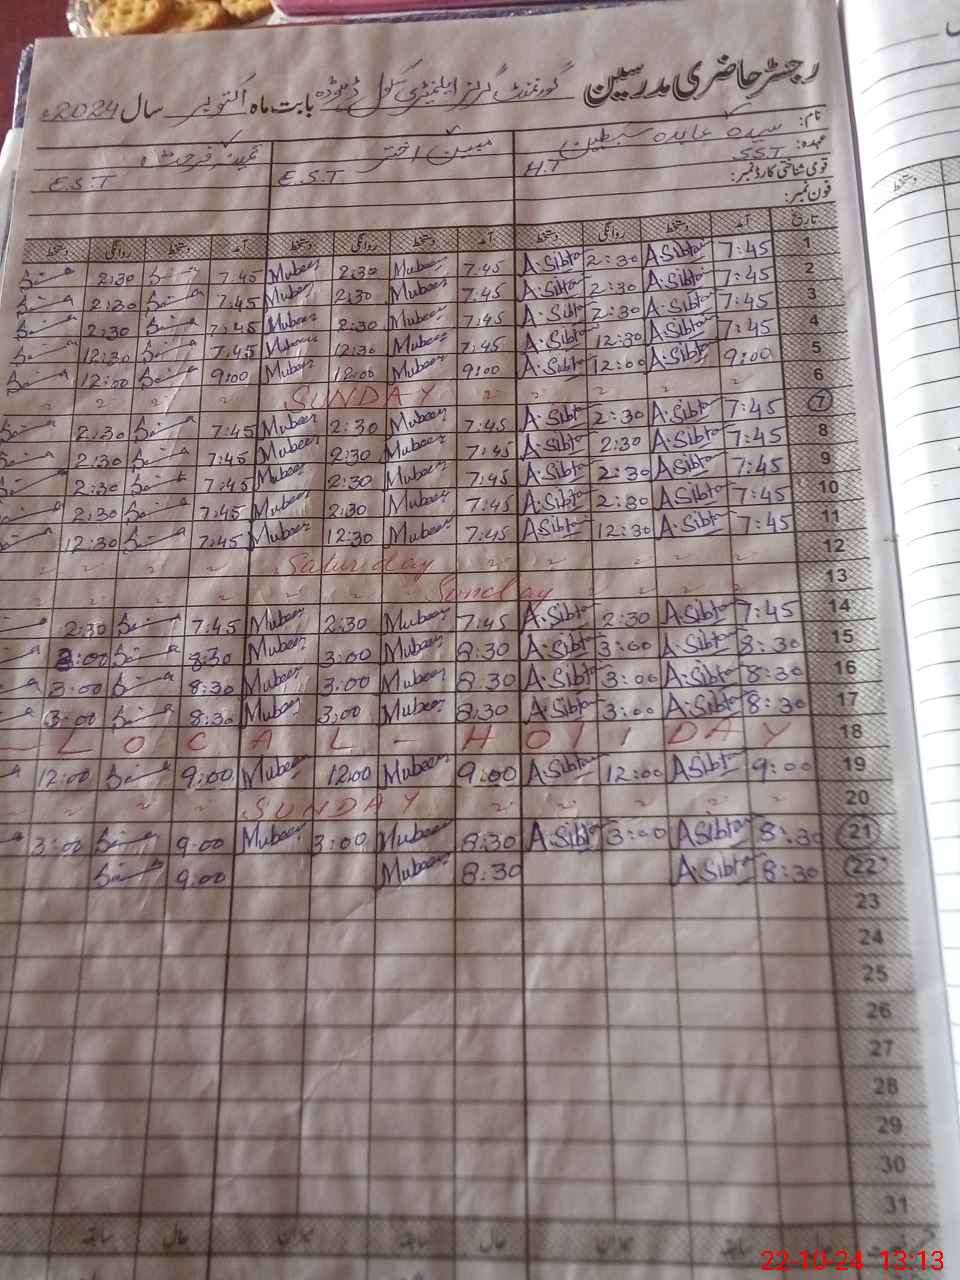 رجسٹر حاضری مدرسین گورنمنٹ گرلز ایلیمنٹری سکول بابت ماہ اکتوبر سال 2024ء
نام: سیدہ عابدہ سبطین مبین اختر
عہدہ: SST H.T E.S.T E.S.T
قومی شناختی کارڈ نمبر:
فون نمبر:
تاریخ آمد دستخط روانگی دستخط آمد دستخط روانگی دستخط آمد دستخط روانگی دستخط
1 7:45 A.Sibta 2:30 A.Sibta 7:45 Mubeen 2:30 Mubeen 7:45 2:30
2 7:45 A.Sibta 2:30 A.Sibta 7:45 Mubeen 2:30 Mubeen 7:45 2:30
3 7:45 A.Sibta 2:30 A.Sibta 7:45 Mubeen 2:30 Mubeen 7:45 2:30
4 7:45 A.Sibta 12:30 A.Sibta 7:45 Mubeen 12:30 Mubeen 7:45 12:30
5 9:00 A.Sibta 12:00 A.Sibta 9:00 Mubeen 12:00 Mubeen 9:00 12:00
6 SUNDAY
7 7:45 A.Sibta 2:30 A.Sibta 7:45 Mubeen 2:30 Mubeen 7:45 2:30
8 7:45 A.Sibta 2:30 A.Sibta 7:45 Mubeen 2:30 Mubeen 7:45 2:30
9 7:45 A.Sibta 2:30 A.Sibta 7:45 Mubeen 2:30 Mubeen 7:45 2:30
10 7:45 A.Sibta 2:30 A.Sibta 7:45 Mubeen 2:30 Mubeen 7:45 2:30
11 7:45 A.Sibta 12:30 ASibta 7:45 Mubeen 12:30 Mubeen 7:45 12:30
12 Saturday
13 Sunday
14 7:45 A.Sibta 2:30 A.Sibta 7:45 Mubeen 2:30 Mubeen 7:45 2:30
15 8:30 A.Sibta 3:00 A.Sibta 8:30 Mubeen 3:00 Mubeen 8:30 3:00
16 8:30 A.Sibta 3:00 A.Sibta 8:30 Mubeen 3:00 Mubeen 8:30 3:00
17 8:30 A.Sibta 3:00 A.Sibta 8:30 Mubeen 3:00 Mubeen 8:30 3:00
18 LOCAL - HOLIDAY
19 9:00 ASibta 12:00 A.Sibta 9:00 Mubeen 12:00 Mubeen 9:00 12:00
20 SUNDAY
21 8:30 ASibta 3:00 A.Sibta 8:30 Mubeen 3:00 Mubeen 9:00 3:00
22 8:30 A.Sibta 8:30 Mubeen 9:00
23
24
25
26
27
28
29
30
31
سابقہ میزان حال سابقہ میزان حال سابقہ
22-10-24 13:13